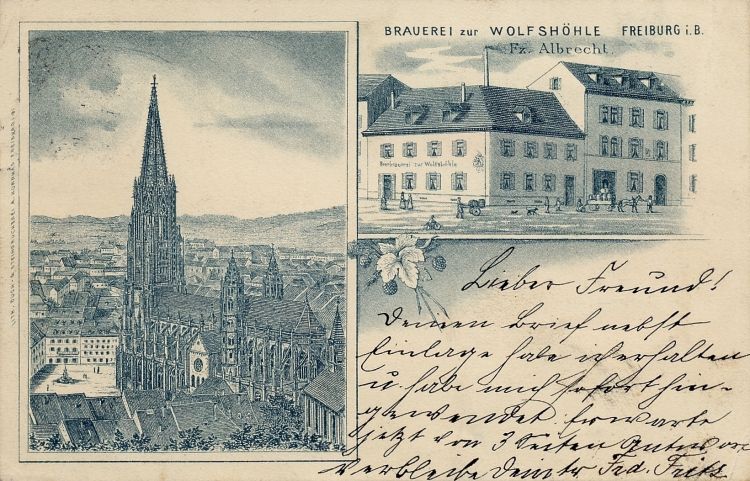 BRAUEREI zur WOLFSHÖHLE FREIBURG i.B.
Fz. Albrecht.
Bierbrauerei zur Wolfshöhle
Lieber Freund!
Deinen Brief nebst
Einlage habe erhalten
u. habe mich sofort hin-
gewendet. Erwarte
jetzt von 3 Seiten
Verbleibe Dein tr. Frd. Fritz